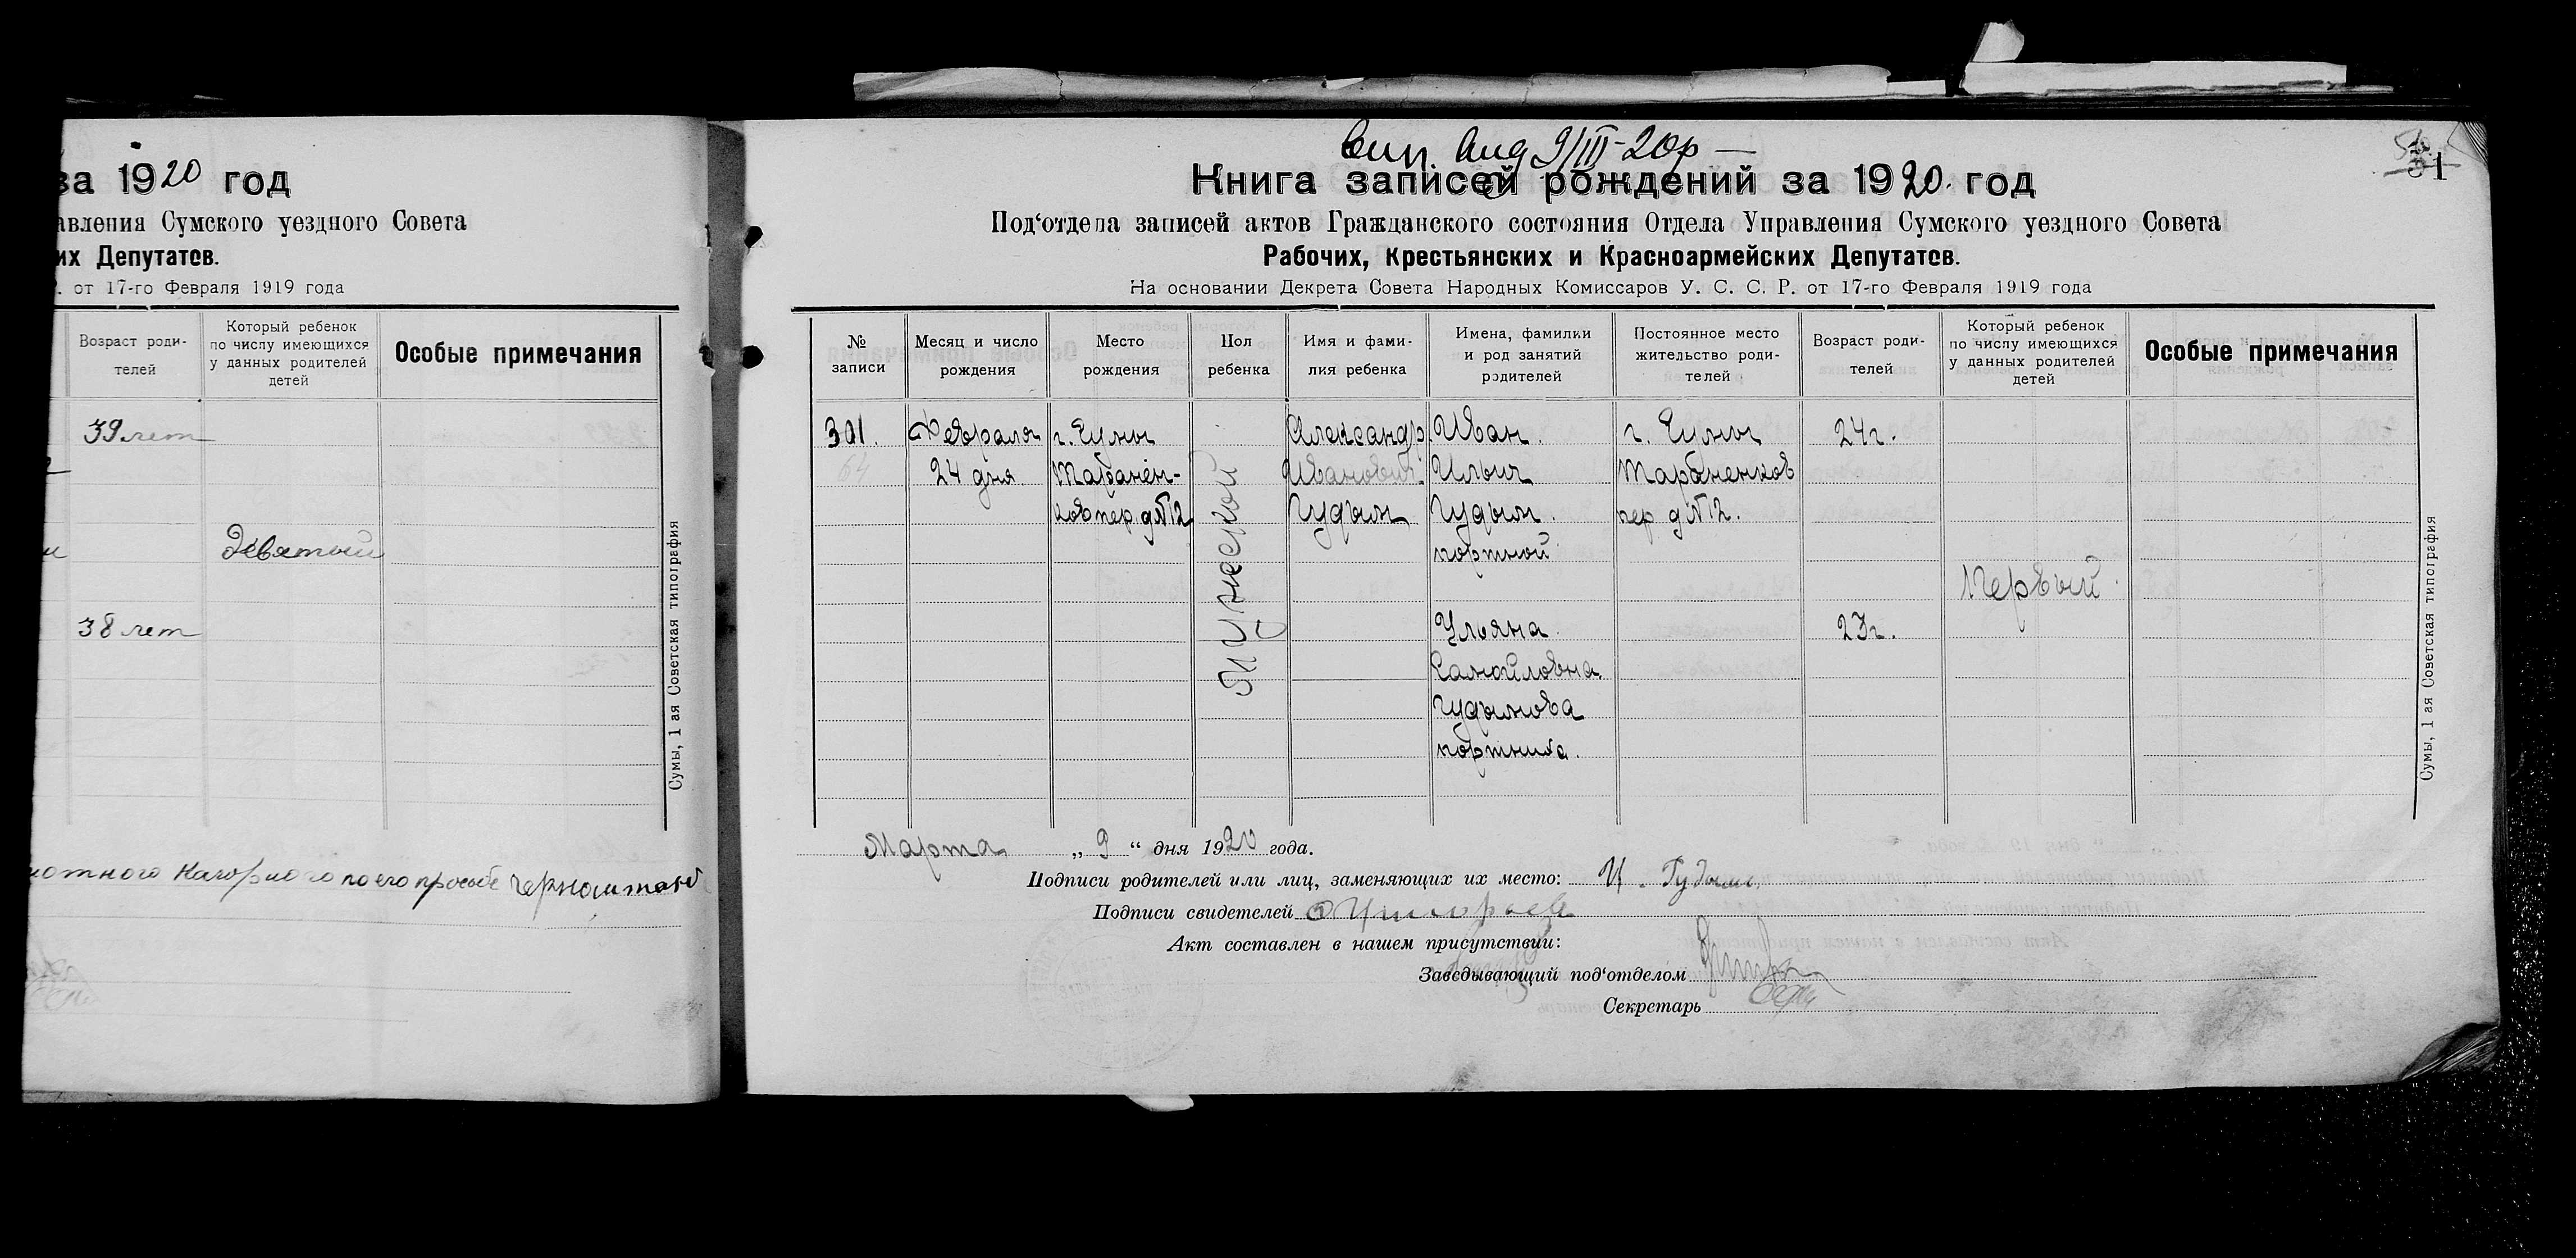 за 1920 год
авления Сумского уездного Совета
их Депутатов.
. от 17-го Февраля 1919 года
Возраст роди-
телей
Который ребенок
по числу имеющихся
у данных родителей
детей
Особые примечания
39 лет
Девятый
38 лет
по его просьбе
Сумы, 1 ая Советская типография
9/III-20р
31
Книга записей рождений за 1920. год
Под‘отдела записей актов Гражданского состояния Отдела Управления Сумского уездного Совета
Рабочих, Крестьянских и Красноармейских Депутатов.
На основании Декрета Совета Народных Комиссаров У. С. С. Р. от 17-го Февраля 1919 года
№
записи
Месяц и число
рождения
Место
рождения
Пол
ребенка
Имя и фами-
лия ребенка
Имена, фамилии
и род занятий
родителей
Постоянное место
жительство роди-
телей
Возраст роди-
телей
Который ребенок
по числу имеющихся
у данных родителей
детей
Особые примечания
301.
64
Февраля
24 дня
г. Сумы
Табанен-
ков пер. д№12
Мужеской
Александр
Иванович
Гудым
Иван.
Ильич
Гудым.
портной
Ульяна
Самойловна
Гудымова
портниха.
г. Сумы
Тарбаненков
пер д№12.
24г.
23г.
Первый.
Сумы, 1 ая Советская типография
Марта „ 9 “ дня 1920 года.
Подписи родителей или лиц, заменяющих их место: И. Гудым
Подписи свидетелей
Акт составлен в нашем присутствии:
Заведывающий под‘отделом
Секретарь